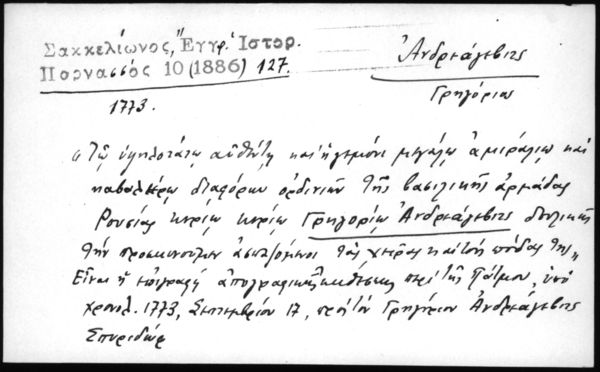 Σακκελίωνος, Ἔγγρ. Ἱστορ.
Παρνασσός 10 (1886) 127.
Ἀνδρεάγεβιτς
Γρηγόριος
1773.
"Τῷ ὑψηλοτάτῳ αὐθέντῃ καὶ ἡγεμόνι μεγάλῳ ἀμιράλιῳ καὶ
καβαλιέρῳ διαφόρων ὀρδινιῶν τῆς βασιλικῆς ἀρμάδας
Ρουσίας κυρίῳ κυρίῳ Γρηγορίῳ Ἀνδρεάγεβιτς δουλικῶς
τὴν προσκύνησιν ἀσπαζόμενοι τὰς χεῖρας καὶ τοὺς πόδας της"
Εἶναι ἡ ἐπιγραφὴ ἀπογραφικῆς ἐκθέσεως περὶ τῆς Πάτμου, ὑπὸ
χρονολ. 1773, Σεπτεμβρίου 17, πρὸς τὸν Γρηγόριον Ἀνδρεάγεβιτς
Σπυριδώφ